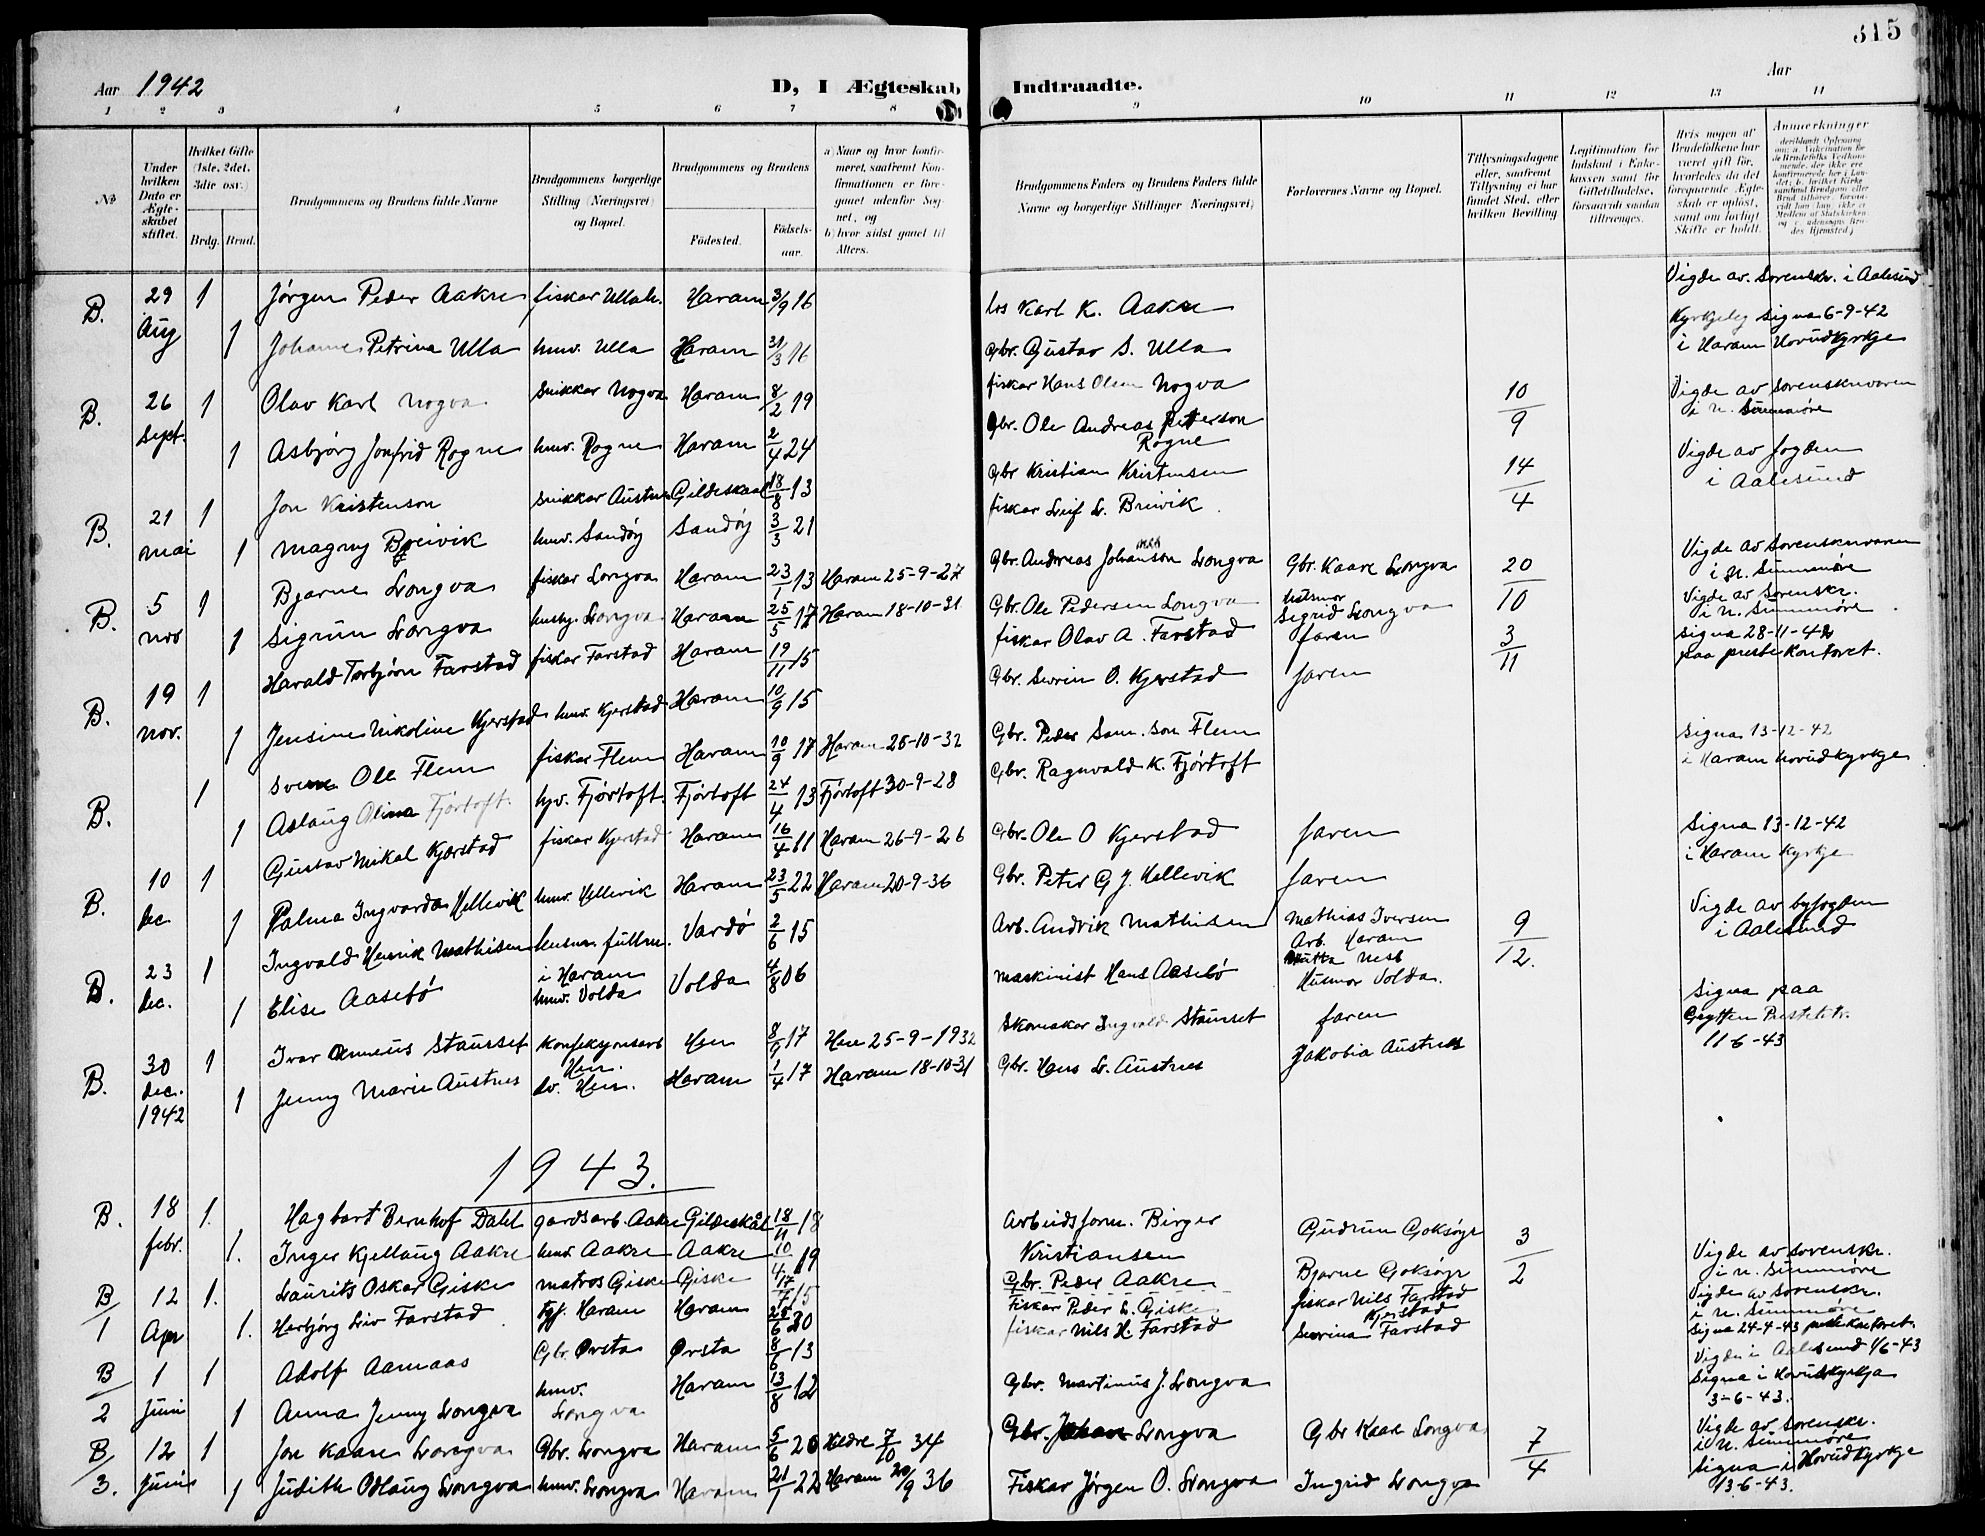 315
Aar 1942
D, I Ægteskab Indtraadte.
Aar
1 2 3 4 5 6 7 8 9 10 11 12 13 14
No
Under hvilken Dato er Ægteskabet stiftet.
Hvilket Gifte (1ste, 2det, 3die osv.)
Brdg. Brud.
Brudgommens og Brudens fulde Navne
Brudgommens borgerlige Stilling (Næringsvei) og Bopæl.
Brudgommens og Brudens
Fødested. Fødselsaar.
a) Naar og hvor konfirmeret, saafremt Konfirmationen er foregaaet udenfor Sognet, og b) hvor sidst gaaet til Alters.
Brudgommens Faders og Brudens Faders fulde Navne og borgerlige Stillinger (Næringsvei)
Forlovernes Navne og Bopæl.
Tillysningsdagene eller, saafremt Tillysning ei har fundet Sted, efter hvilken Bevilling
Legitimation for Indskud i Enkekassen samt for Giftetilladelse, forsaavidt saadan tiltrænges.
Hvis nogen af Brudefolkene har været gift før, hvorledes da det foregaaende Ægteskab er opløst, samt om lovligt Skifte er holdt.
Anmerkninger
B. 29 Aug 1 Jørgen Peder Aakre fiskar Ullah. Haram 3/9 16 los Karl K. Aakre Vigde av Sorenskr. i Aalesund
1 Johanne Petrina Ulla husv. Ulla Haram 31/3 16 Gbr. Gustav S. Ulla Kyrkjeleg signa 6-9-42 i Haram Hovudkyrkje
B. 26 Sept. 1 Olav Karl Nogva Snikkar Nogva Haram 8/2 19 fiskar Hans Olsen Nogva 10/9 Vigde av Sorenskrivaren i N. Sunnmøre
1 Asbjørg Jonfrid Rogne husv. Rogne Haram 2/4 24 Gbr. Ole Andreas Petterson Rogne
B. 21 mai 1 Jon Kristenson Snikkar Austnes Gildeskaal 18/8 13 Gbr Kristian Kristensen 14/4 Vigde av fogden i Aalesund
1 Magny Breivik husv. Sandøy Sandøy 3/3 21 fiskar Leif L. Breivik
B. 5 nov 1 Bjarne Longva fiskar Longva Haram 23/1 13 Haram 25-9-27 Gbr. Andreas Johansson Longva Gbr. Kaare Longva 20/10 Vigde av Sorenskrivaren i N. Sunnmøre
1 Sigrun Longva hushj. Longva Haram 25/5 17 Haram 18-10-31 Gbr. Ole Pedersen Longva husmor Sigrid Longva Vigde av Sorenskr. i N. Sunnmøre
B. 19 nov. 1 Harald Torbjørn Farstad fiskar Farstad Haram 19/11 15 fiskar Olav A. Farstad faren 3/11 signa 28-11-42 paa prestekontoret.
1 Jensine Nikoline Kjerstad husv. Kjerstad Haram 10/9 15 Gbr. Severin O. Kjerstad faren
B. 1 Svein Ole Flem fiskar Flem Haram 10/9 17 Haram 25-10-32 Gbr. Peder Sam.son Flem Signa 13-12-42 i Haram hovudkyrkje
1 Aslaug Olina Fjørtoft hjv. Fjørtoft. Fjørtoft 24/4 13 Fjørtoft 30-9-28 Gbr. Ragnvald K. Fjørtoft
B. 10 Dec 1 Gustav Mikal Kjerstad fiskar Kjerstad Haram 16/4 11 Haram 26-9-26 Gbr. Ole O Kjerstad faren Signa 13-12-42 i Haram Kyrkje
1 Palma Ingvarda Hellevik husv. Hellevik Haram 23/5 22 Haram 20-9-36 Gbr. Peter G J. Hellevik faren
B. 23 Dec. 1 Ingvald Henrik Mathisen i Haram Vardø 2/6 15 Arb. Andvik Mathisen Mathias Iversen Arb. Haram 9/12. Vigde av byfogden i Aalesund
1 Elise Aasebø husv. Volda Volda 4/8 06 maskinist Hans Aasebø Husmor Volda.
B. 30 Dec. 1942 1 Ivar Anneus Staurset Konfeksjonsarb Hen. Hen 8/9 17 Hen 25-9-1932 Skomakar Ingvald Staurset faren Signa paa Grytten Prestekt. 11-6-43
1 Jenny Marie Austnes Hen. Haram 1/4 17 Haram 18-10-31 Gbr. Hans L. Austnes Jakobia Austnes
1943.
B. 18 febr. 1. Hagbart Bernhof Dahl gardsarb. Aakre Gildeskål 18/11 18 Arbeidsform. Birger Kristiansen Gudrun Goksøyr 3/2 Vigde av Sorenskr. i N. Sunnmøre
1. Inger Kjellaug Aakre husv. Aakre Aakre 10/4 19 Gbr. Peder Aakre Bjarne Goksøyr
B/1 12 Apr 1. Laurits Oskar Giske matros Giske Giske 17/7 15 Fiskar Peder L. Giske fiskar Nils Farstad Vigde av Sorenskr. i N. Sunnmøre
1. Herbjørg Liv Farstad Haram Haram 28/6 20 fiskar Nils H. Farstad Severina Kjerstad Farstad Signa 24-4-43 prestekontoret.
B/2 1 Juni 1 Adolf Aamaas Gbr. Ørsta Ørsta 8/6 13 Vigde i Aalesund 1/6-43
1 Anna Jenny Longva husv. Longva Haram 13/8 12 Gbr. Martinus J. Longva Signa i Hovudkyrkja 3-6-43.
B/3. 12 Juni 1 Jon Kaare Longva Gbr. Longva Haram 5/6 20 Hildre 7/10 34 Gbr. Johan Longva Gbr Kaare Longva 7/4 Vigde av Sorenskr. i N. Sunnmøre
1 Judith Oddlaug Longva husv. Longva Haram 21/1 22 Haram 20/9 36 Fiskar Jørgen O. Longva Ingrid Longva Signa i Hovudkyrkje 13-6-43.